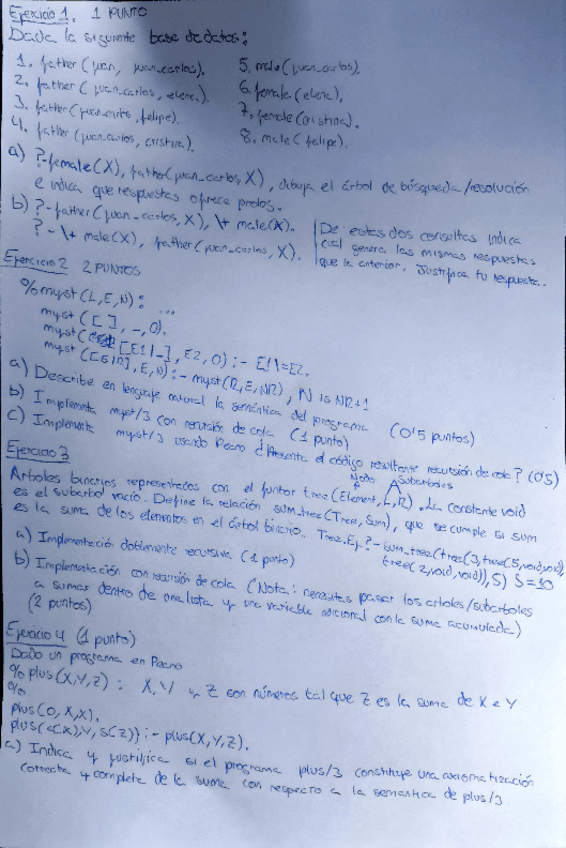 Ejercicio 1. 1 PUNTO
Dada la siguiente base de datos:
1. father (juan, juan_carlos). 5. male (juan_carlos).
2. father (juan_carlos, elena). 6. female (elena).
3. father (juan_carlos, felipe). 7. female (cristina).
4. father (juan_carlos, cristina). 8. male (felipe).
a) ?-female(X), father(juan_carlos, X), dibuja el árbol de búsqueda/resolución
e indica que respuestas ofrece prolog.
b) ?-father (juan_carlos, X), \+ male(X).
?- \+ male(X), father(juan_carlos, X).
De estas dos consultas indica
cual genera las mismas respuestas
que la anterior. Justifica tu respuesta.
Ejercicio 2 2 PUNTOS
% myst (L, E, N): ...
myst ([ ], _, 0).
myst ([E1|_], E2, 0) :- E1\=E2.
myst ([E|R], E, N) :- myst(R, E, NR), N is NR+1
a) Describe en lenguaje natural la semántica del programa (0'5 puntos)
b) Implementa myst/3 con recursión de cola (1 punto)
c) Implementa myst/3 usando Peano ¿Presenta el código resultante recursión de cola? (0'5)
Ejercicio 3
Nodos Subarboles
Arboles binarios representados con el funtor tree (Element, L, R). La constante void
es el subarbol vacio. Define la relación sum_tree (Tree, Sum), que se cumple si sum
es la suma de los elementos en el árbol binario. Ej. ?- sum_tree(tree(3, tree(5, void, void),
tree(2, void, void)), S) S=10
a) Implementación doblemente recursiva (1 punto)
b) Implementación con recursión de cola (Nota: necesitas pasar los arboles/subarboles
a sumar dentro de una lista y una variable adicional con la suma acumulada)
(2 puntos)
Ejercicio 4 (1 punto)
Dado un programa en Peano
% plus (X, Y, Z) : X, Y y Z son números tal que Z es la suma de X e Y
%
plus (0, X, X).
plus (s(X), Y, s(Z)) :- plus (X, Y, Z).
a) Indica y justifica si el programa plus/3 constituye una axiomatización
correcta y completa de la suma con respecto a la semantica de plus/3